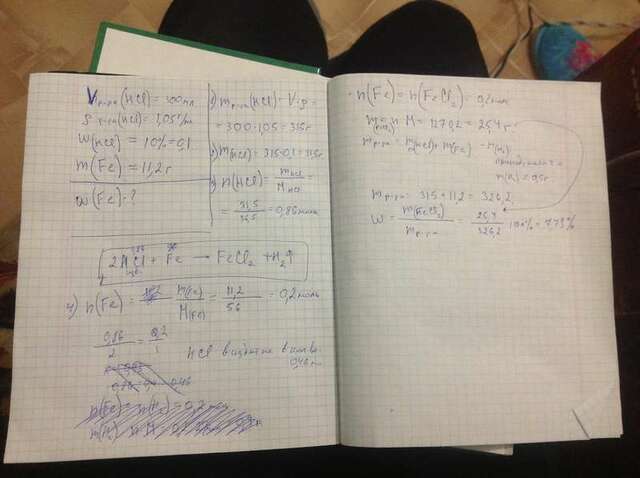 V р-ра (HCl) = 300 мл
ρ р-ра (HCl) = 1,05 г/мл
w(HCl) = 10% = 0,1
m(Fe) = 11,2 г
w(Fe) = ?
1) m р-ра (HCl) = V·ρ =
= 300·1,05 = 315 г
2) m(HCl) = 315·0,1 = 31,5 г
3) n(HCl) = mHCl / MHCl =
= 31,5 / 36,5 = 0,86 моль
2HCl + Fe → FeCl2 + H2↑
4) n(Fe) = m(Fe) / M(Fe) = 11,2 / 56 = 0,2 моль
0,86 / 2 = 0,2 / 1
HCl в избытке
0,46
n(Fe) = n(FeCl2) = 0,2 моль
m = n·M = 127·0,2 = 25,4 г
m р-ра = m(HCl) + m(Fe) - m(H2)
m р-ра = 315 + 11,2 = 326,2
w = m(FeCl2) / m р-ра = 25,4 / 326,2 · 100% = 7,79%